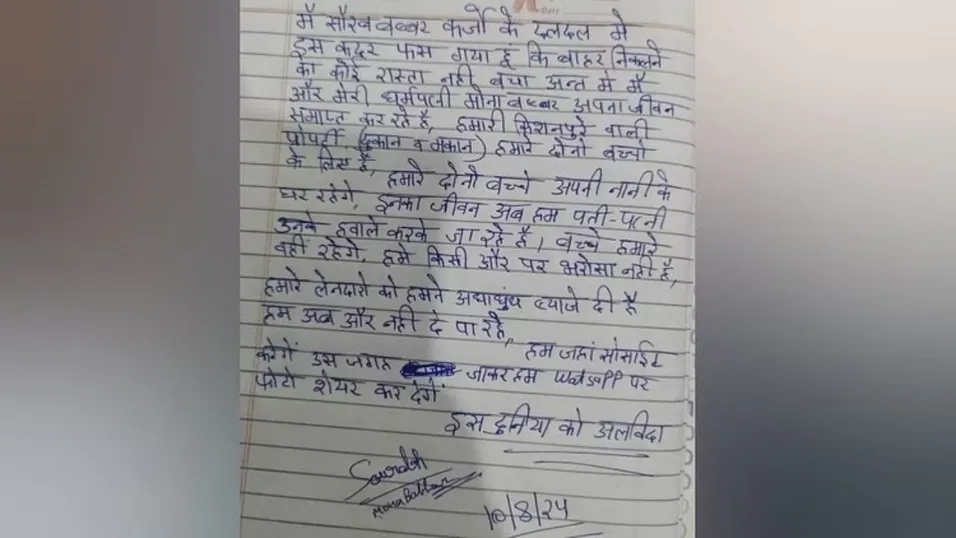 मै सौरव बब्बर कर्जो के दलदल मे
इस कदर फस गया हूं कि बाहर निकलने
का कोई रास्ता नही बचा अन्त मे मै
और मेरी धर्मपत्नी मोना बब्बर अपना जीवन
समाप्त कर रहे है, हमारी किशनपुरे वाली
प्रोपर्टी (दुकान व मकान) हमारे दोनो बच्चो
के लिए है, हमारे दोनो बच्चे अपनी नानी के
घर रहेगे, इनका जीवन अब हम पती-पत्नी
उनके हवाले करके जा रहे है, बच्चे हमारे
वही रहेगे, हमे किसी और पर भरोसा नही है,
हमारे लेनदारो को हमने अंधाधुंध ब्याजे दी है
हम अब और नही दे पा रहे,, हम जहां सोसाईट
करेगें उस जगह जाकर हम Watsapp पर
फोटो शेयर कर देगें
इस दुनिया को अलविदा
Saurabh
Mona Babbar
10/8/24